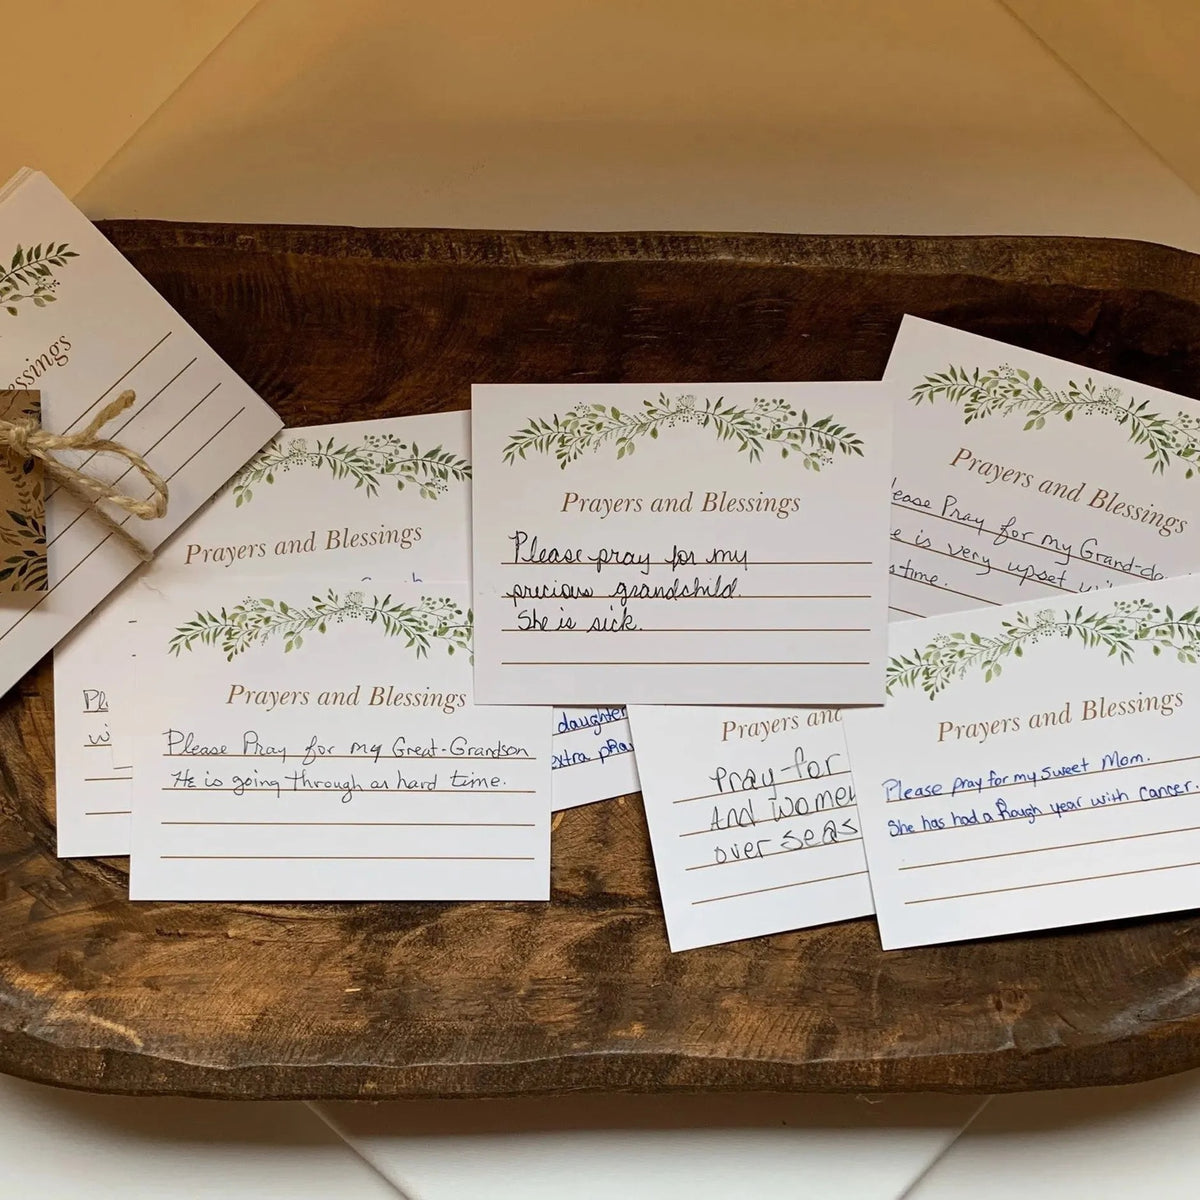 essings
Prayers and Blessings
Prayers and Blessings
Please Pray for my Great-Grandson
He is going through an hard time.
daughter
extra
Prayers and Blessings
Please pray for my
precious grandchild.
She is sick.
Prayers and
Pray for
And women
over seas
Prayers and Blessings
Please Pray for my Grand-da
is very upset
time.
Prayers and Blessings
Please pray for my sweet Mom.
She has had a Rough year with cancer.